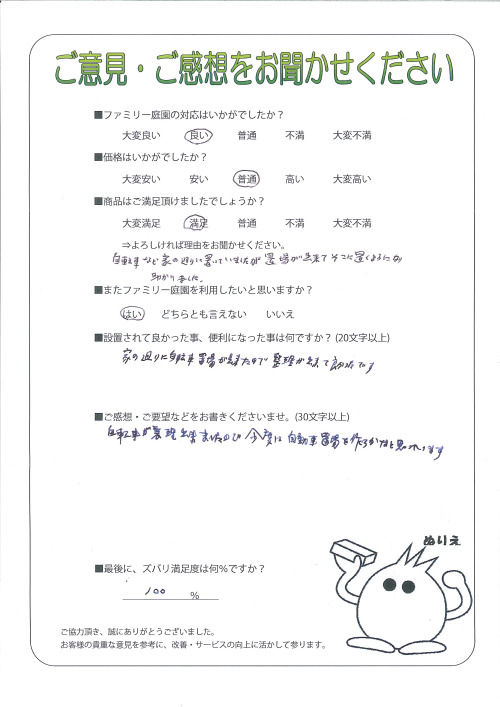 ご意見・ご感想をお聞かせください
■ファミリー庭園の対応はいかがでしたか？
大変良い 良い 普通 不満 大変不満
■価格はいかがでしたか？
大変安い 安い 普通 高い 大変高い
■商品はご満足頂けましたでしょうか？
大変満足 満足 普通 不満 大変不満
⇒よろしければ理由をお聞かせください。
自転車など家の廻りに置いていましたが 置場が出来て そこに置くようになり
助かりました。
■またファミリー庭園を利用したいと思いますか？
はい どちらとも言えない いいえ
■設置されて良かった事、便利になった事は何ですか？ (20文字以上)
家の廻りに自転車置場が出来たので 整理が出来て
■ご感想・ご要望などをお書きくださいませ。(30文字以上)
自転車が整理出来ましたので 今度は 自動車置場を
ぬりえ
■最後に、ズバリ満足度は何%ですか？
100 %
ご協力頂き、誠にありがとうございました。
お客様の貴重な意見を参考に、改善・サービスの向上に活かして参ります。